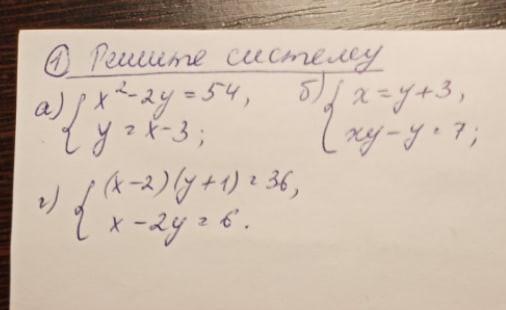 ① Решите систему
а) { x² - 2y = 54, б) { x = y + 3,
y = x - 3; xy - y = 7;
г) { (x - 2)(y + 1) = 36,
x - 2y = 6.